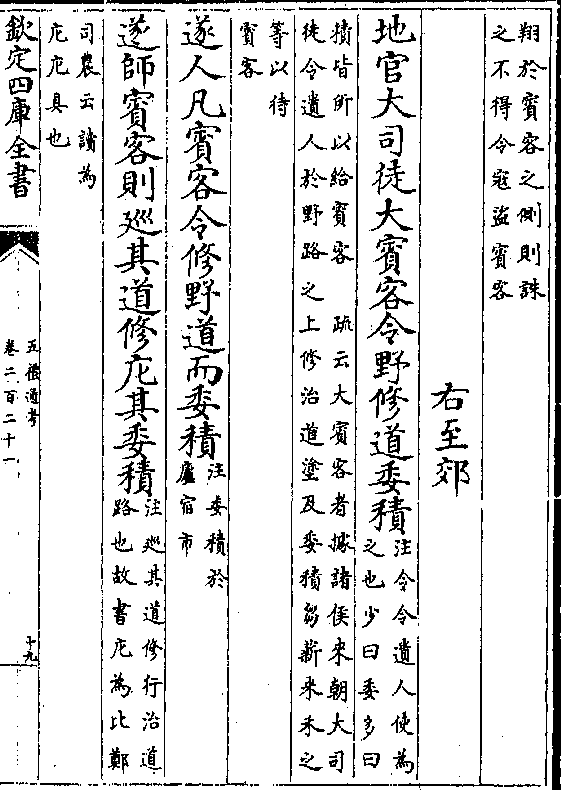 翔於賓客之側則誅
之不得令寇盜賓客
右至郊
地官大司徒大賓客令野修道委積
注令令遺人使為
之也少曰委多曰
積皆所以給賓客　疏云大賓客者據諸侯来朝大司
徒令遺人於野路之上修治道塗及委積芻薪米禾之
等以待
賓客
遂人凡賓客令修野道而委積
注委積於
廬宿市
遂師賓客則廵其道修庀其委積
注廵其道修行治道
路也故書庀為比鄭
司農云讀為
庀庀具也
欽定四庫全書
五禮通考
卷二百二十一
十九